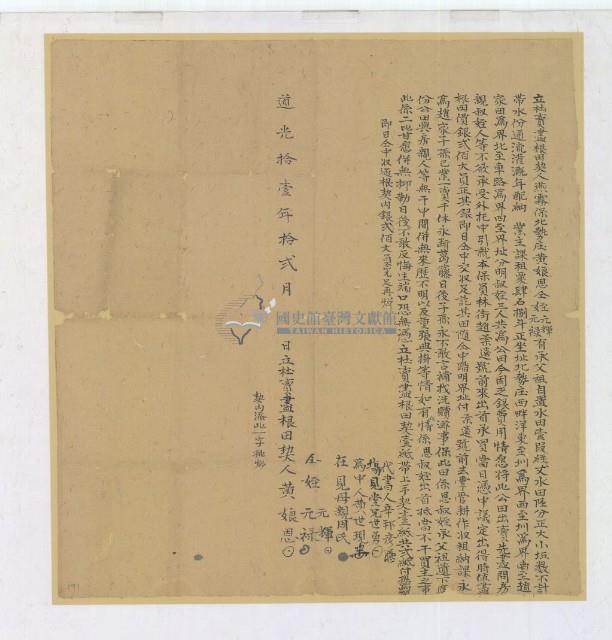 立杜賣盡根田契人燕霧保北勢庄黃娘恩仝姪元輝元祿有承父祖自置水田壹段經丈水田陸分正大小坵數不計
帶水份通流灌溉年配納 業主課租粟肆石捌斗正坐址北勢庄西畔洋東至圳為界西至圳為界南至趙
家田為界北至車路為界四至界址分明叔姪二人共為公田今因乏銀費用情愿將此公田出賣先盡問房
親叔姪人等不欲承受外托中引就本保員林街趙茶遠號前來出首承買當日憑中議定出得時值盡
根田價銀弍佰大員正其銀即日仝中交收足訖其田隨仝中踏明界址付茶遠號前去掌管耕作收租納課永
為趙家子孫己業一賣千休永斷葛藤日後子孫永不敢言補找洗贖滋事保此田係恩叔姪承父祖遺下應
份公田與房親人等無干中間併無來歷不明以及重張典掛等情如有情係恩叔姪出首抵當不干買主之事
此係二比甘愿併無抑勒日後不敢反悔生端口恐無憑立杜賣盡根田契壹紙帶上手契壹紙共弍紙付執為炤
即日仝中收過根契內銀弍佰大員完足再炤
代書人辛邦彥
場見堂兄世勇
為中人黃世現
在見母親周氏
元輝
仝姪 元祿
道光拾壹年拾弍月 日立杜賣盡根田契人黃娘恩
契內添此一字批炤
國史館臺灣文獻館
TAIWAN HISTORICA